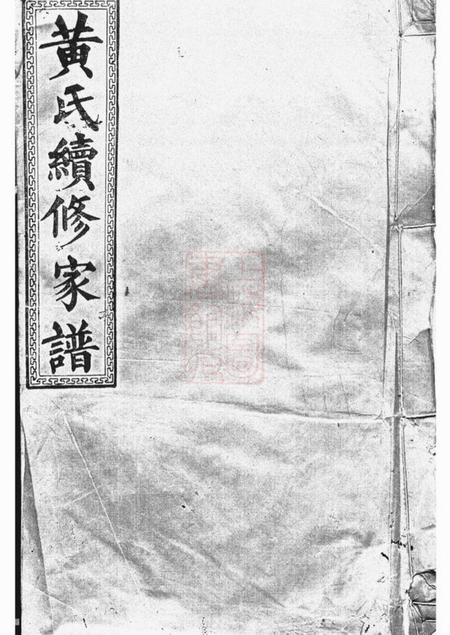 黃氏續修家譜